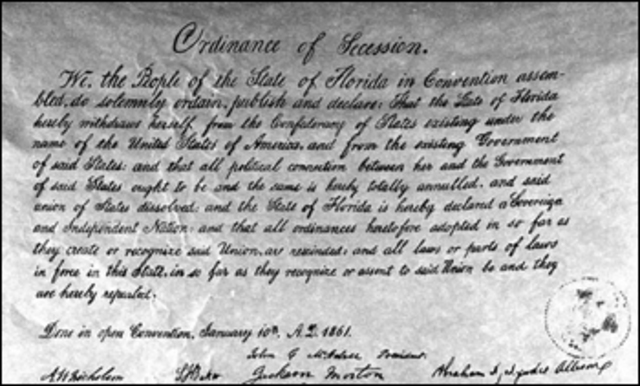 Ordinance of Secession.
We, the People of the State of Florida in Convention assem-
bled, do solemnly ordain, publish and declare: That the State of Florida
hereby withdraws herself from the Confederacy of States existing under the
name of the United States of America, and from the existing Government
of said States: and that all political connection between her and the Government
of said States ought to be and the same is hereby totally annulled, and said
union of States dissolved: and the State of Florida is hereby declared a Sovereign
and Independent Nation: and that all ordinances heretofore adopted in so far as
they create or recognize said Union, are rescinded: and all laws or parts of laws
in force in this State, in so far as they recognize or assent to said Union be and they
are hereby repealed.
Done in open Convention, January 10th, A.D. 1861.
John C President.
Jackson Morton